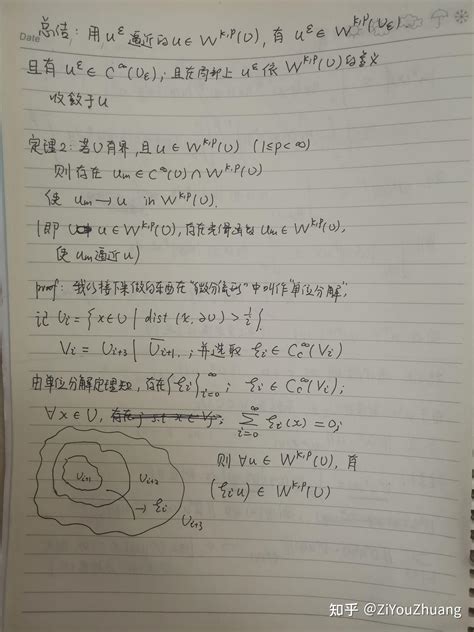 Date
总结: 用 u^ε 逼近的 u∈W^{k,p}(U), 有 u^ε∈W^{k,p}(U_ε)
且有 u^ε∈C^∞(U_ε); 且在局部上 u^ε 依 W^{k,p}(U)的意义
收敛于 u
定理2: 若U有界, 且 u∈W^{k,p}(U) (1≤p<∞)
则存在 u_m∈C^∞(U)∩W^{k,p}(U)
使 u_m→u in W^{k,p}(U).
(即 u∈W^{k,p}(U), 存在光滑函数 u_m∈W^{k,p}(U),
使 u_m 逼近 u)
proof: 我们接下来做的东西在"微分流形"中叫作"单位分解";
记 U_i={x∈U | dist(x,∂U)>1/i}
V_i = U_{i+3} | \overline{U_{i+1}}, ; 并选取 ξ_i∈C_c^∞(V_i)
由单位分解定理知, 存在{ξ_i}_{i=0}^∞; ξ_i∈C_c^∞(V_i);
∀x∈U, 存在j s.t x∈V_j; ∑_{i=0}^∞ ξ_i(x)=0;
则 ∀u∈W^{k,p}(U), 有
(ξ_i u)∈W^{k,p}(U)
U_{i+1}
U_{i+2}
→ξ_i
U_{i+3}
知乎 @ZiYouZhuang